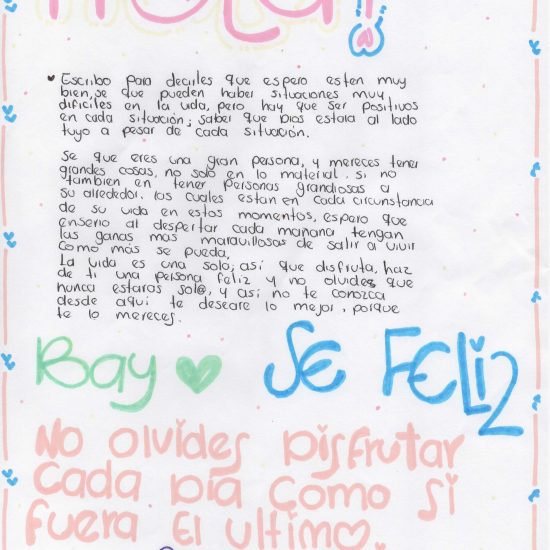 HOLA!!
♥ Escribo para decirles que espero esten muy
bien, se que pueden haber situaciones muy
dificiles en la vida, pero hay que ser positivos
en cada situación; saber que Dios estara al lado
tuyo a pesar de cada situación.
Se que eres una gran persona, y mereces tener
grandes cosas, no solo en lo material. si no
tambien en tener personas grandiosas a
su alrededor. los cuales estan en cada circunstancia
de su vida en estos momentos, espero que
enserio al despertar cada mañana tengan
las ganas mas maravillosas de salir a vivir
como mas se pueda,
La vida es una solo; así que disfruta, haz
de ti una persona feliz y no olvides que
nunca estaras sol@, y asi no te conozca
desde aqui te deseare lo mejor, porque
te lo mereces.
Bay ♥ SE FELiz
No olvides DisFrutar
cada Dia como si
fuera El ultimo.